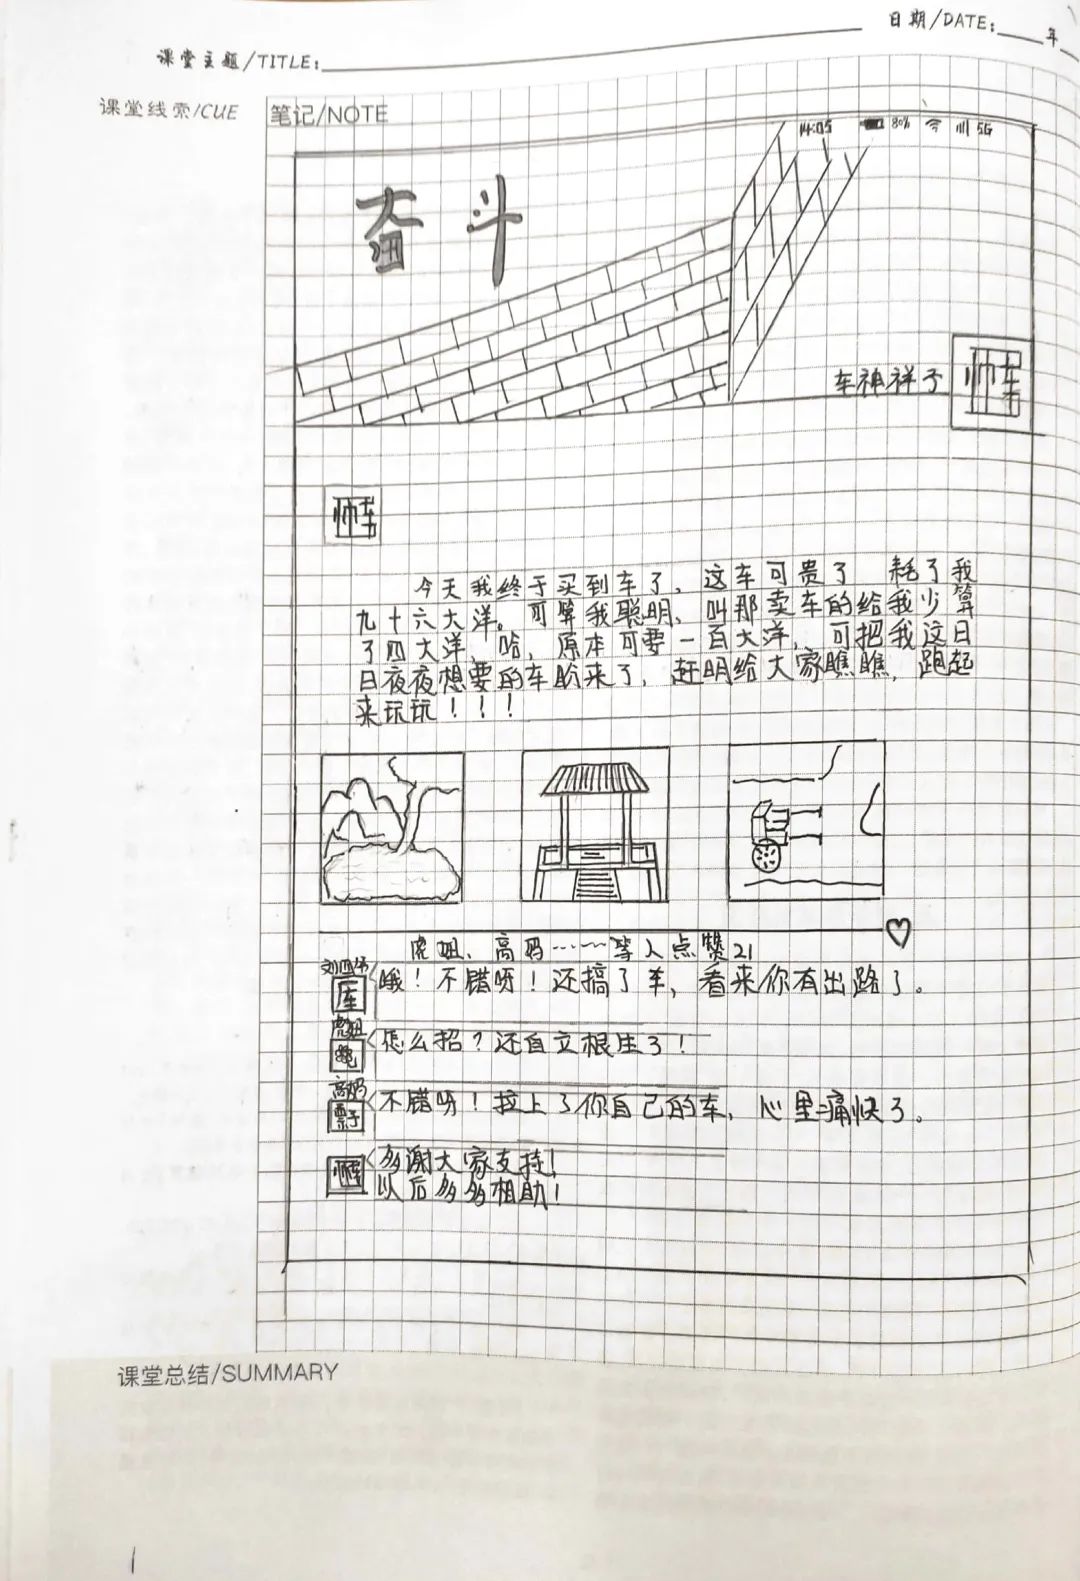 日期/DATE: 年
课堂主题/TITLE:
课堂线索/CUE
笔记/NOTE
14:05 80% 5G
奋斗
车神祥子
帅车
帅车
今天我终于买到车了，这车可贵了 耗了我
九十六大洋。可算我聪明，叫那卖车的给我少算
了四大洋，哈，原本可要一百大洋，可把我这日
日夜夜想要的车盼来了，赶明给大家瞧瞧，跑起
来玩玩！！！
虎妞、高妈……等人点赞21
刘四爷
车
哦！不错呀！还搞了车，看来你有出路了。
虎妞
怎么招？还自立根生了！
高妈
票子
不错呀！拉上了你自己的车，心里痛快了。
帅车
多谢大家支持！
以后多多相助！
课堂总结/SUMMARY